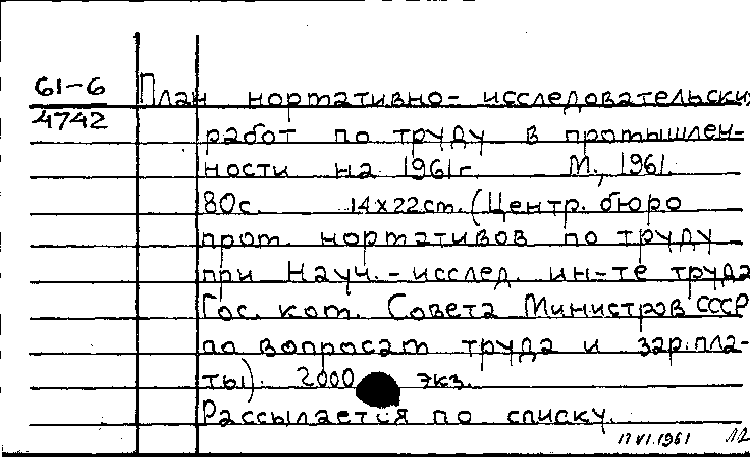 61-6
4742
План нормативно-исследовательских
работ по труду в промышлен-
ности на 1961г. М., 1961.
80с. 14x22см. (Центр. бюро
пром. нормативов по труду
при Науч.-исслед. ин-те труда
Гос. ком. Совета Министров СССР
по вопросам труда и зар.пла-
ты). 2000 экз.
Рассылается по списку.
17 VI.1961 12